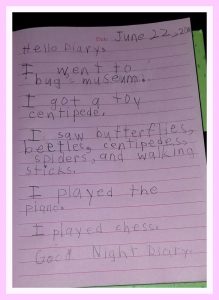 June 22,
Hello Diary,
I went to
bug's museum.
I got a toy
centipede.
I saw butterflies,
beetles, centipedes,
spiders, and walking
sticks.
I played the
piano.
I played chess.
Good Night Diary.